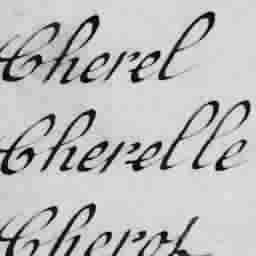 Cherel
Cherelle
Cherot